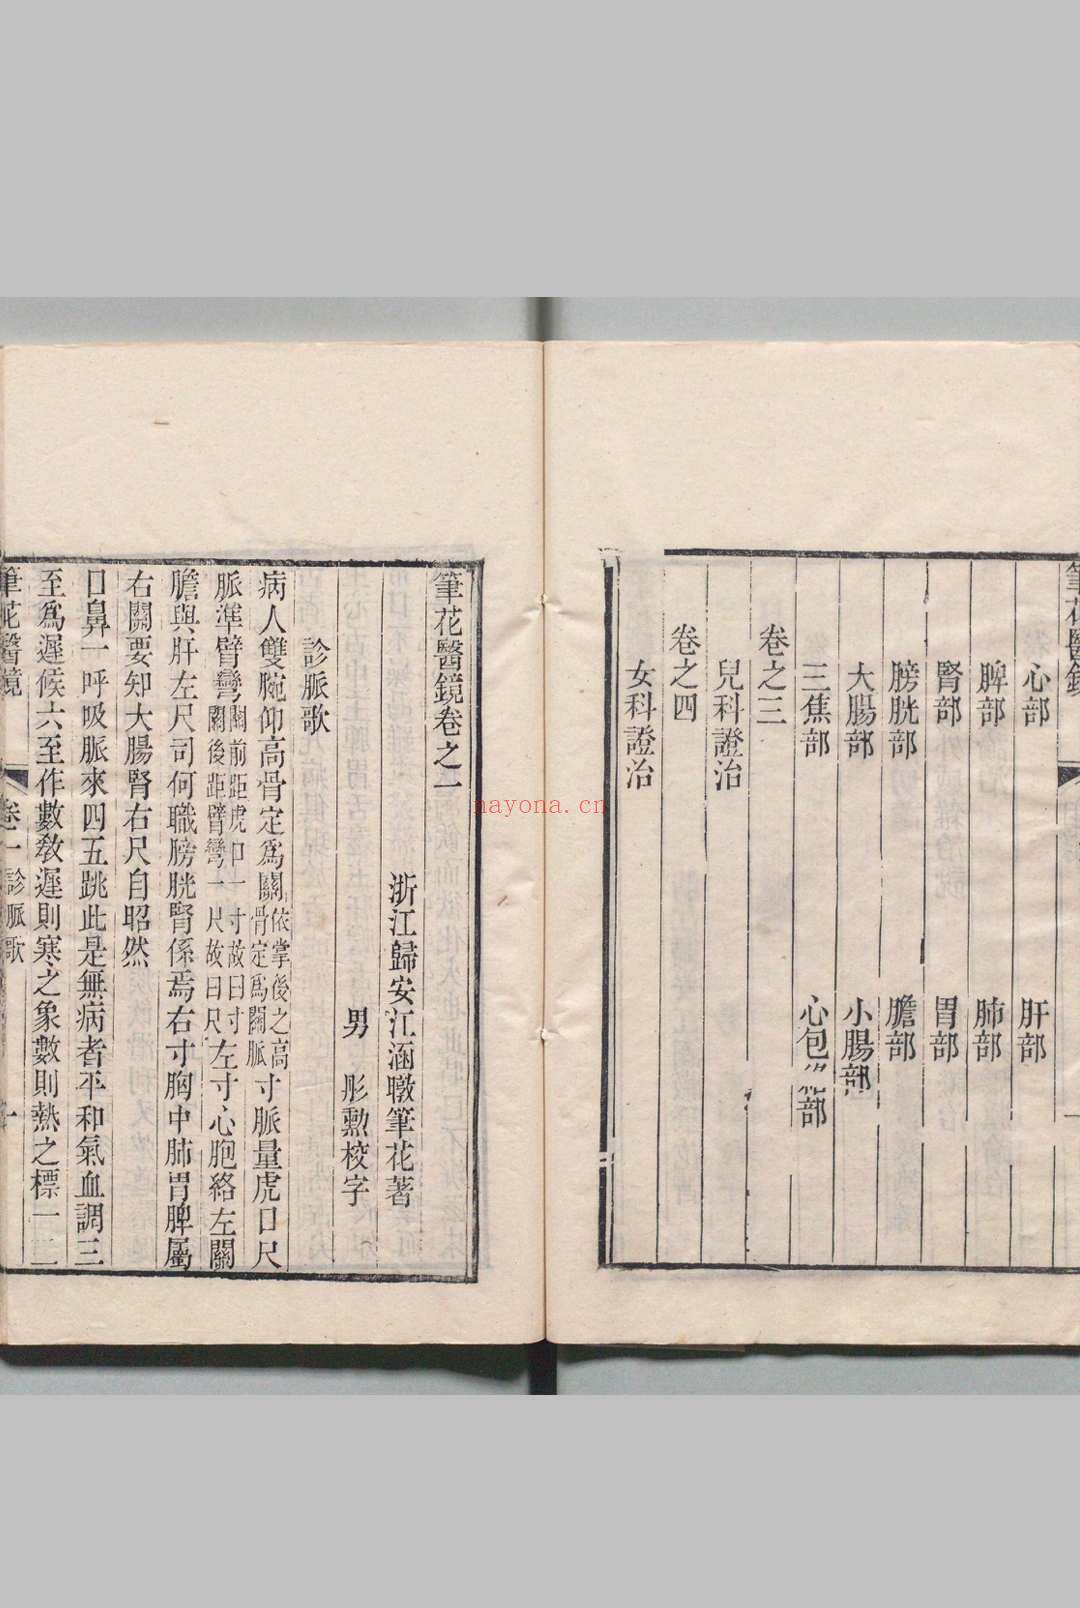 筆花醫鏡
心部 肝部
脾部 肺部
腎部 胃部
膀胱部 膽部
大腸部 小腸部
三焦部 心包絡部
卷之三
兒科證治
卷之四
女科證治
筆花醫鏡卷之一
浙江歸安江涵暾筆花著
男 彤勲校字
診脈歌
病人雙腕仰高骨定爲關依掌後之高骨定爲關脈寸脈量虎口尺
脈準臂彎關前距虎口一寸故曰寸關後距臂彎一尺故曰尺左寸心胞絡左關
膽與肝左尺司何職膀胱腎係焉右寸胸中肺胃脾屬
右關要知大腸腎右尺自昭然
口鼻一呼吸脈來四五跳此是無病者平和氣血調三
至爲遲候六至作數教遲則寒之象數則熱之標一二
筆花醫鏡 卷一 診脈歌 一
nayona.cn